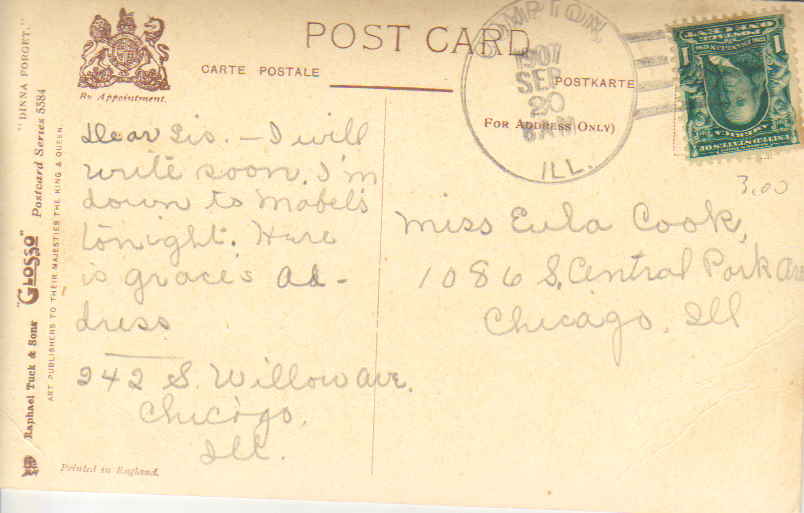 POST CARD
CARTE POSTALE
POSTKARTE
(FOR ADDRESS ONLY)
By Appointment.
COMPTON,
1907
SEP
20
6 AM
ILL.
1
1
3.00
Dear Sis. — I will
write soon. I'm
down to Mabel's
tonight. Here
is grace's Ad-
dress
242 S. Willow ave.
Chicago,
Ill.
Miss Eula Cook,
1086 S. Central Park Ave
Chicago, Ill
"DINNA FORGET."
Raphael Tuck & Sons' "GLOSSO" Postcard Series 5584
ART PUBLISHERS TO THEIR MAJESTIES THE KING & QUEEN.
Printed in England.